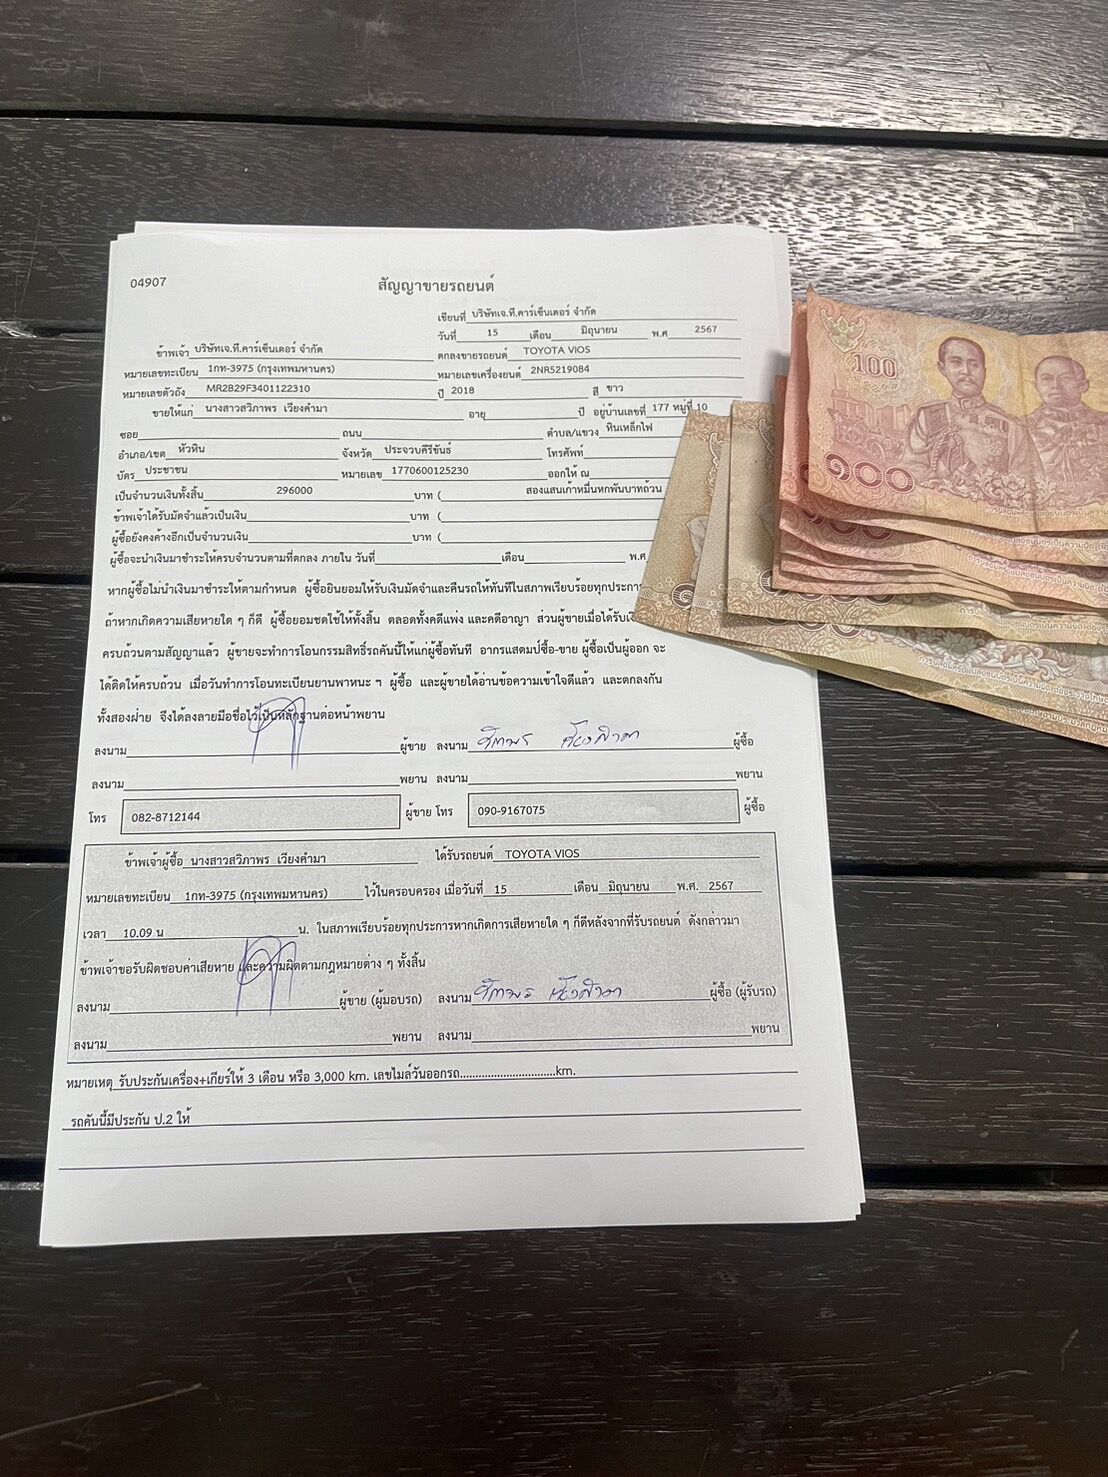 04907
สัญญาขายรถยนต์
เขียนที่ บริษัทเจ.ที.คาร์เซ็นเตอร์ จำกัด
วันที่ 15 เดือน มิถุนายน พ.ศ 2567
ข้าพเจ้า บริษัทเจ.ที.คาร์เซ็นเตอร์ จำกัด ตกลงขายรถยนต์ TOYOTA VIOS
หมายเลขทะเบียน 1กท-3975 (กรุงเทพมหานคร) หมายเลขเครื่องยนต์ 2NR5219084
หมายเลขตัวถัง MR2B29F3401122310 ปี 2018 สี ขาว
ขายให้แก่ นางสาวสวิภาพร เวียงคำมา อายุ ปี อยู่บ้านเลขที่ 177 หมู่ที่ 10
ซอย ถนน ตำบล/แขวง หินเหล็กไฟ
อำเภอ/เขต หัวหิน จังหวัด ประจวบคีรีขันธ์ โทรศัพท์
บัตร ประชาชน หมายเลข 1770600125230 ออกให้ ณ
เป็นจำนวนเงินทั้งสิ้น 296000 บาท ( สองแสนเก้าหมื่นหกพันบาทถ้วน
ข้าพเจ้าได้รับมัดจำแล้วเป็นเงิน บาท (
ผู้ซื้อยังคงค้างอีกเป็นจำนวนเงิน บาท (
ผู้ซื้อจะนำเงินมาชำระให้ครบจำนวนตามที่ตกลง ภายใน วันที่ เดือน พ.ศ
หากผู้ซื้อไม่นำเงินมาชำระให้ตามกำหนด ผู้ซื้อยินยอมให้รับเงินมัดจำและคืนรถให้ทันทีในสภาพเรียบร้อยทุกประการ
ถ้าหากเกิดความเสียหายใด ๆ ก็ดี ผู้ซื้อยอมชดใช้ให้ทั้งสิ้น ตลอดทั้งคดีแพ่ง และคดีอาญา ส่วนผู้ขายเมื่อได้รับเงิ
ครบถ้วนตามสัญญาแล้ว ผู้ขายจะทำการโอนกรรมสิทธิ์รถคันนี้ให้แก่ผู้ซื้อทันที อากรแสตมป์ซื้อ-ขาย ผู้ซื้อเป็นผู้ออก จะ
ได้ติดให้ครบถ้วน เมื่อวันทำการโอนทะเบียนยานพาหนะ ฯ ผู้ซื้อ และผู้ขายได้อ่านข้อความเข้าใจดีแล้ว และตกลงกัน
ทั้งสองฝ่าย จึงได้ลงลายมือชื่อไว้เป็นหลักฐานต่อหน้าพยาน
ลงนาม ผู้ขาย ลงนาม ผู้ซื้อ
ลงนาม พยาน ลงนาม พยาน
โทร 082-8712144 ผู้ขาย โทร 090-9167075 ผู้ซื้อ
ข้าพเจ้าผู้ซื้อ นางสาวสวิภาพร เวียงคำมา ได้รับรถยนต์ TOYOTA VIOS
หมายเลขทะเบียน 1กท-3975 (กรุงเทพมหานคร) ไว้ในครอบครอง เมื่อวันที่ 15 เดือน มิถุนายน พ.ศ. 2567
เวลา 10.09 น น. ในสภาพเรียบร้อยทุกประการหากเกิดการเสียหายใด ๆ ก็ดีหลังจากที่รับรถยนต์ ดังกล่าวมา
ข้าพเจ้าขอรับผิดชอบค่าเสียหาย และความผิดตามกฎหมายต่าง ๆ ทั้งสิ้น
ลงนาม ผู้ขาย (ผู้มอบรถ) ลงนาม ผู้ซื้อ (ผู้รับรถ)
ลงนาม พยาน ลงนาม พยาน
หมายเหตุ รับประกันเครื่อง+เกียร์ให้ 3 เดือน หรือ 3,000 km. เลขไมล์วันออกรถ..............................km.
รถคันนี้มีประกัน ป.2 ให้
100
๑๐๐